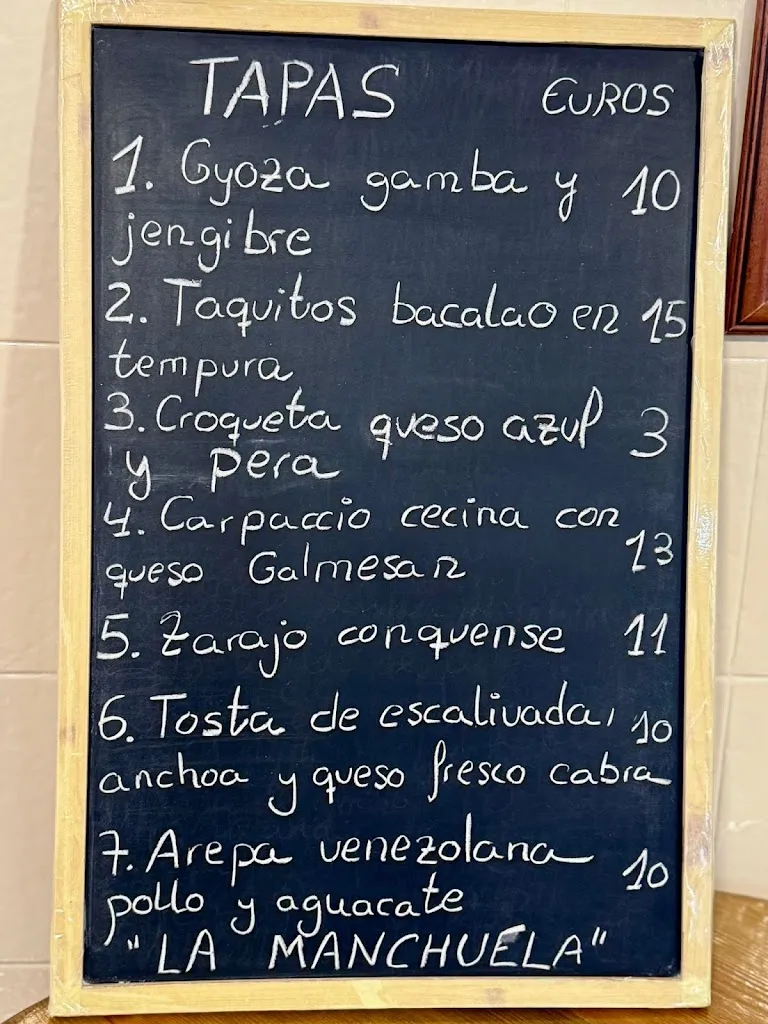 TAPAS EUROS
1. Gyoza gamba y 10
jengibre
2. Taquitos bacalao en 15
tempura
3. Croqueta queso azul 3
y pera
4. Carpaccio cecina con
queso Galmesan 13
5. Zarajo conquense 11
6. Tosta de escalivada, 10
anchoa y queso fresco cabra
7. Arepa venezolana 10
pollo y aguacate
"LA MANCHUELA"